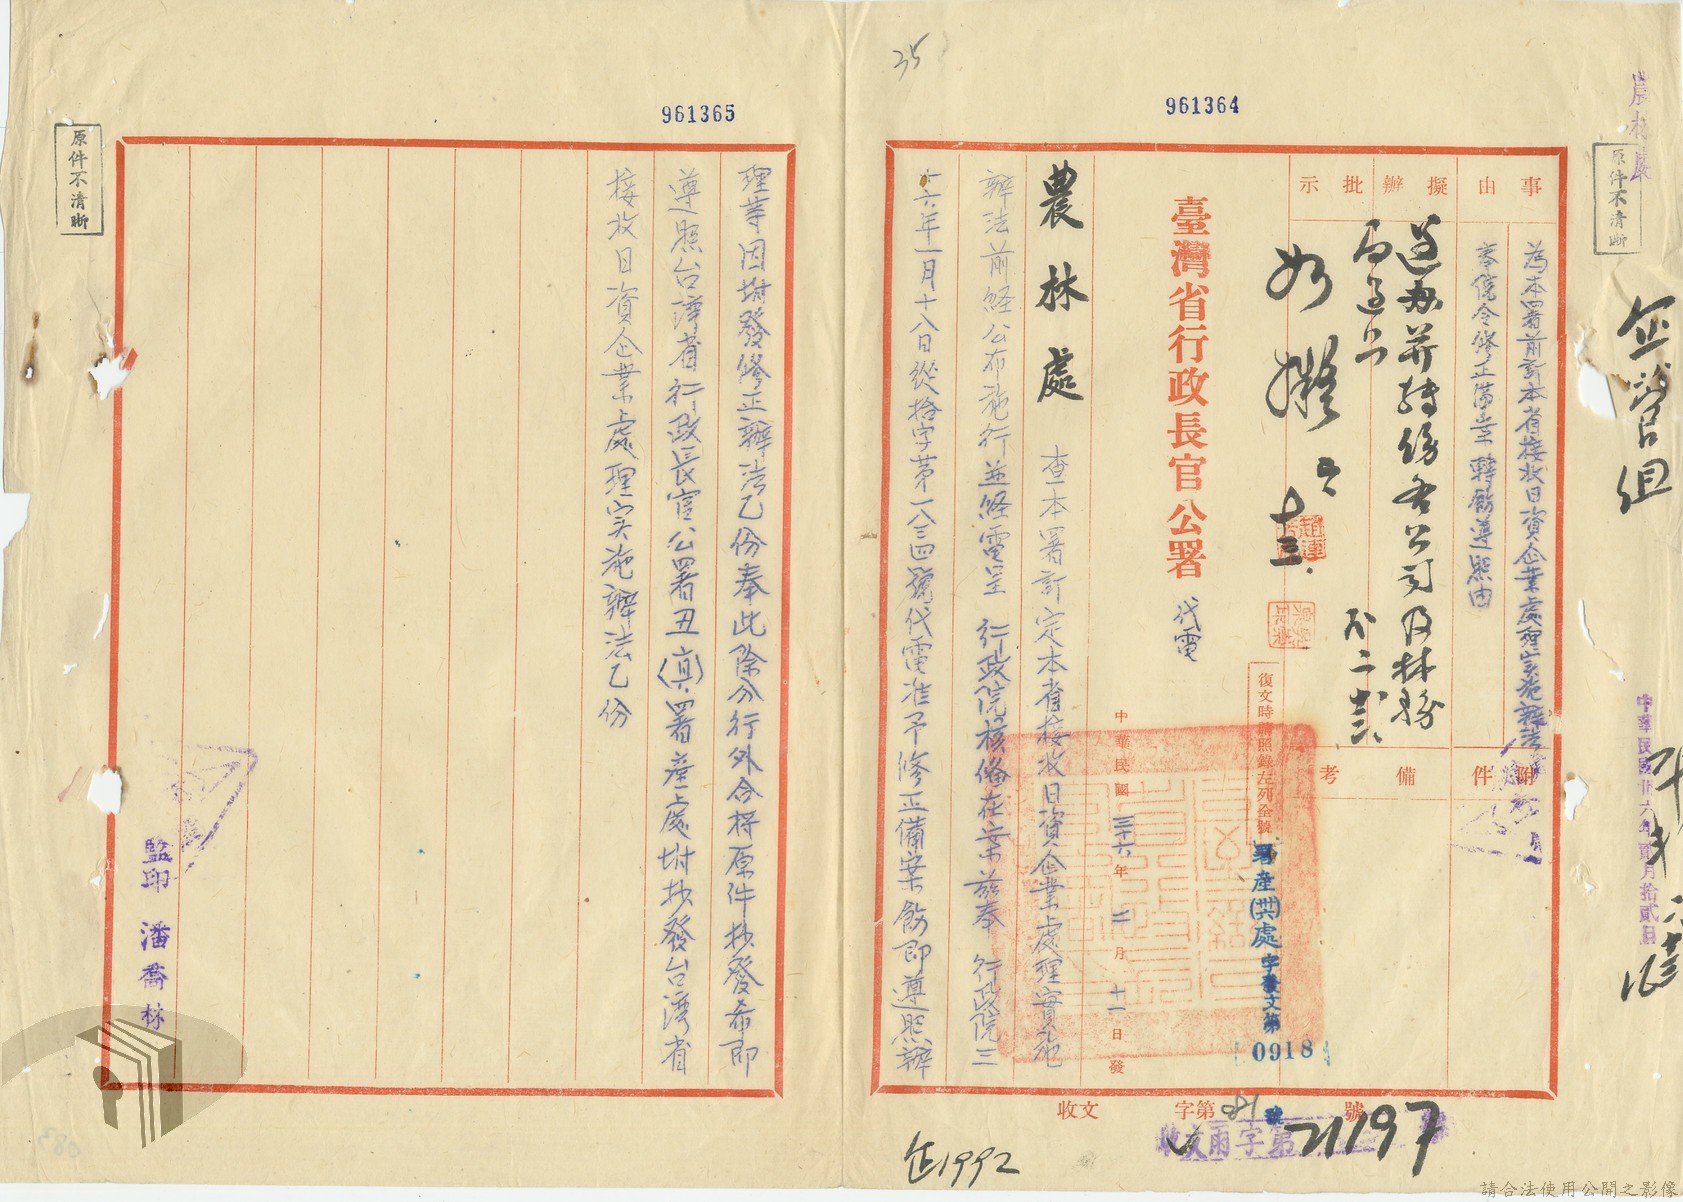 35
961364
961365
原件不清晰
原件不清晰
農林處
企營組
中華民國卅六年貳月拾貳日
事由
為本署前訂本省接收日資企業處理实施辦法
奉院令修正備案轉飭遵照由
擬辦
批示
遵办并轉飭各公司及林務
局遵照
二
如擬
十三
附件
備考
臺灣省行政長官公署
代電
復文時請照錄左列全號
署產(卅六)處字發文第
0918
中華民國三十六年二月十一日發
農林處
查本署訂定本省接收日資企業處理實施
辦法前經公布施行並經電呈 行政院核備在案茲奉 行政院三
十六年一月十八日從拾字第一八三四號代電准予修正備案飭即遵照辦
理等因坿發修正辦法乙份奉此除分行外合將原件抄發希即
遵照台灣省行政長官公署丑(真)署產處坿抄發台灣省
接收日資企業處理实施辦法乙份
監印 潘喬林
收文 字第 號
收文雨字第 號
21197
企1992
請合法使用公開之影像